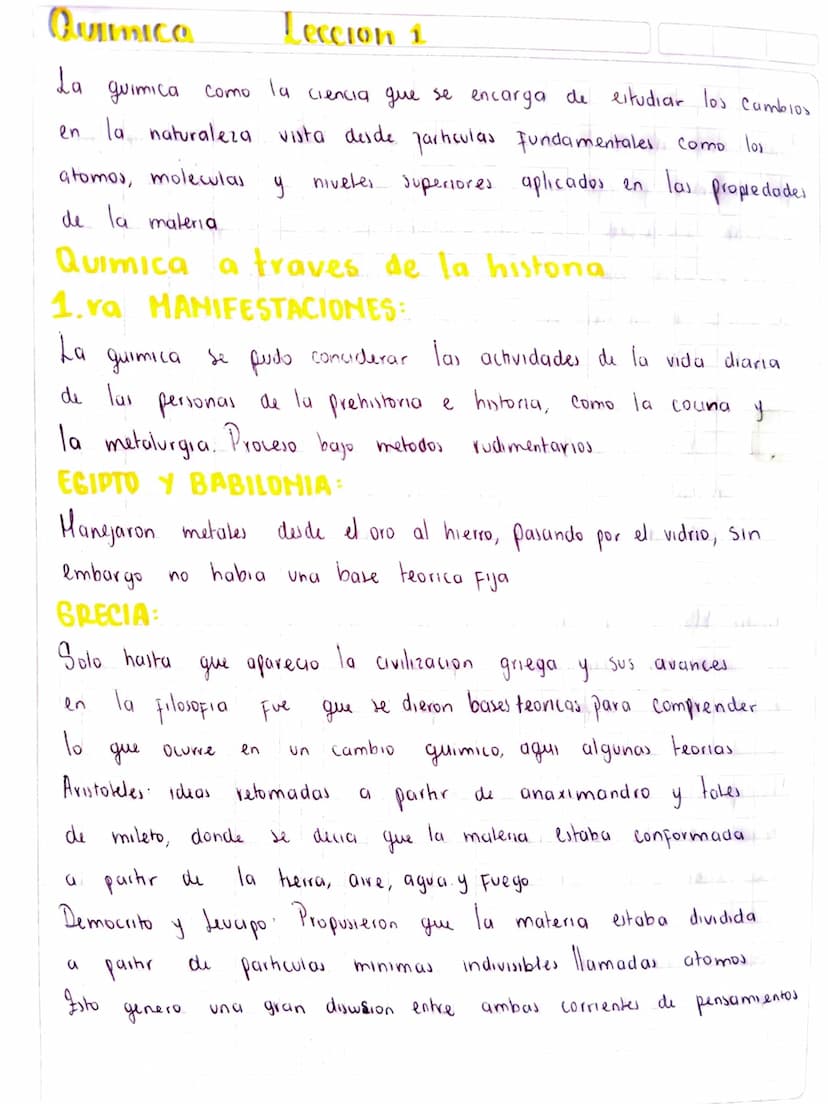 Quimica Leccion 1
La quimica como la ciencia que se encarga de estudiar los cambios
en la naturaleza vista desde particulas fundamentales como los
atomos, moleculas y niveles superiores aplicados en las propiedades
de la materia
Quimica a traves de la historia
1.ra MANIFESTACIONES:
La quimica se pudo conciderar las actividades de la vida diaria
de las personas de la prehistoria e historia, como la cocina y
la metalurgia. Proceso bajo metodos rudimentarios
EGIPTO Y BABILONIA:
Manejaron metales desde el oro al hierro, pasando por el vidrio, sin
embargo no habia una base teorica fija
GRECIA:
Solo hasta que aparecio la civilizacion griega y sus avances
en la filosofia fue que se dieron bases teoricas para comprender
lo que ocurre en un cambio quimico, aqui algunas teorias
Aristoteles: ideas retomadas a partir de anaximandro y tales
de mileto, donde se decia que la materia estaba conformada
a partir de la tierra, aire, agua y fuego
Democrito y Leucipo: Propusieron que la materia estaba dividida
a partir de particulas minimas indivisibles llamadas atomos
Esto genero una gran discusion entre ambas corrientes de pensamientos